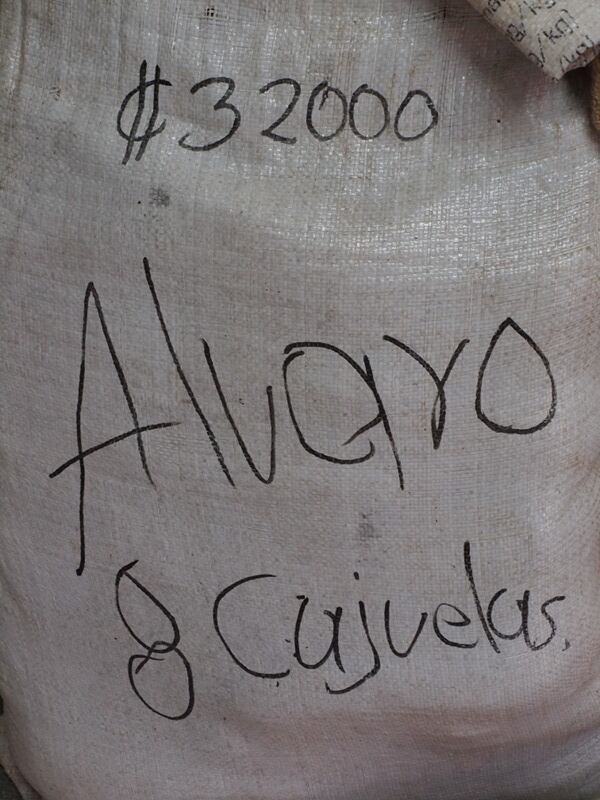 $32000
Alvaro
8 Cajuelas.